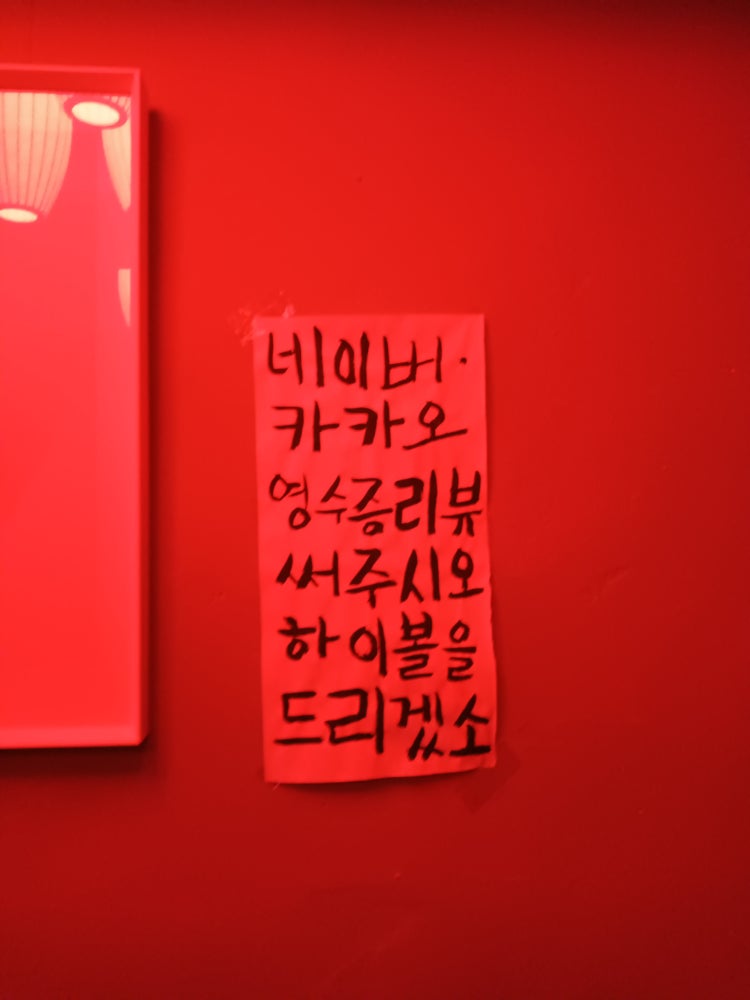 네이버·
카카오
영수증리뷰
써주시오
하이볼을
드리겠소